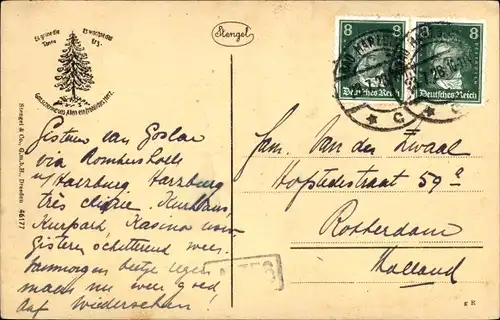 Es grüne die Tanne
Es wachse das Erz
Gott schenke uns Allen ein fröhliches Herz.
Stengel
8 8
8
Deutsches Reich
Deutsches Reich
C
C
Stengel & Co., G.m.b.H., Dresden 46177
Gistern van Goslar
via Romkerhalle
n/ Harzburg. Harzburg
très chique. Kurhaus,
Kurpark, Kasino usw.
Gisteren schitterend weer.
Vanmorgen beetje regen
maar nu weer goed
Auf Wiedersehen!
Fam. van der Zwaal
Hofstedestraat 59a
Rotterdam
Holland